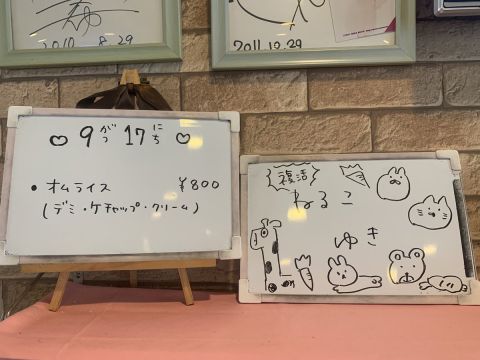 2010. 8. 29
2011. 12. 29
♡ 9がつ 17にち ♡
• オムライス ¥800
(デミ・ケチャップ・クリーム)
復活
ねるこ
ゆき